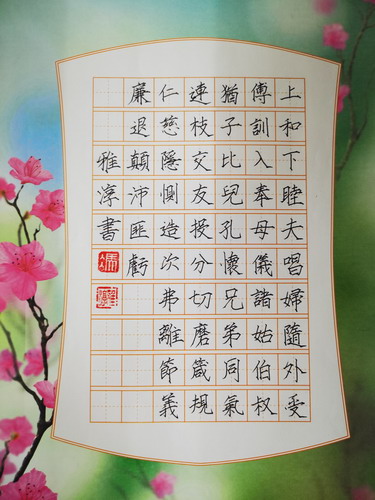 上和下睦夫唱婦隨外受
傅訓入奉母儀諸姑伯叔
猶子比兒孔懷兄弟同氣
連枝交友投分切磨箴規
仁慈隱惻造次弗離節義
廉退顛沛匪虧
雅淳書